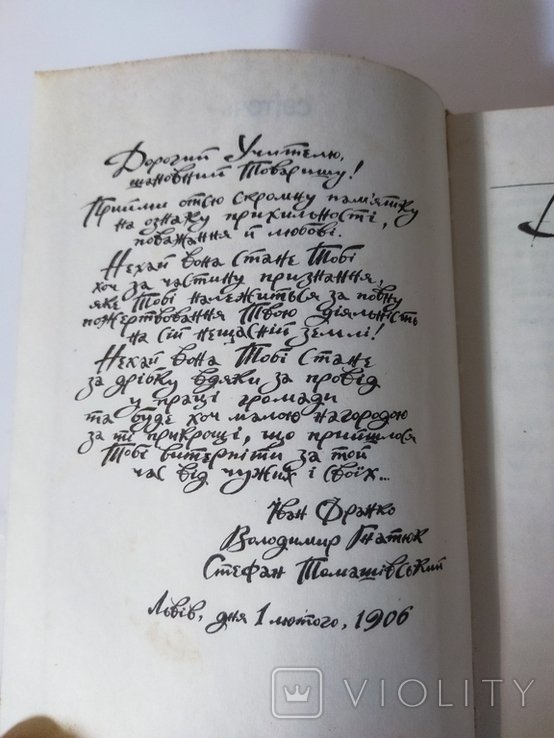 Дорогий Учителю,
шановний Товаришу!
Прийми отсю скромну пам'ятку
на ознаку прихильності,
поважання й любові.
Нехай вона стане Тобі
хоч за частину признання,
яке Тобі належиться за повну
пожертвовання Твою діяльність
на сій нещасній землі!
Нехай вона Тобі стане
за дрібку вдяки за провід
у праці громади
та буде хоч малою нагородою
за ті прикрощі, що прийшлося
Тобі витерпіти за той
час від чужих і своїх...
Іван Франко
Володимир Гнатюк
Стефан Томашівський
Львів, дня 1 лютого, 1906
VIOLITY